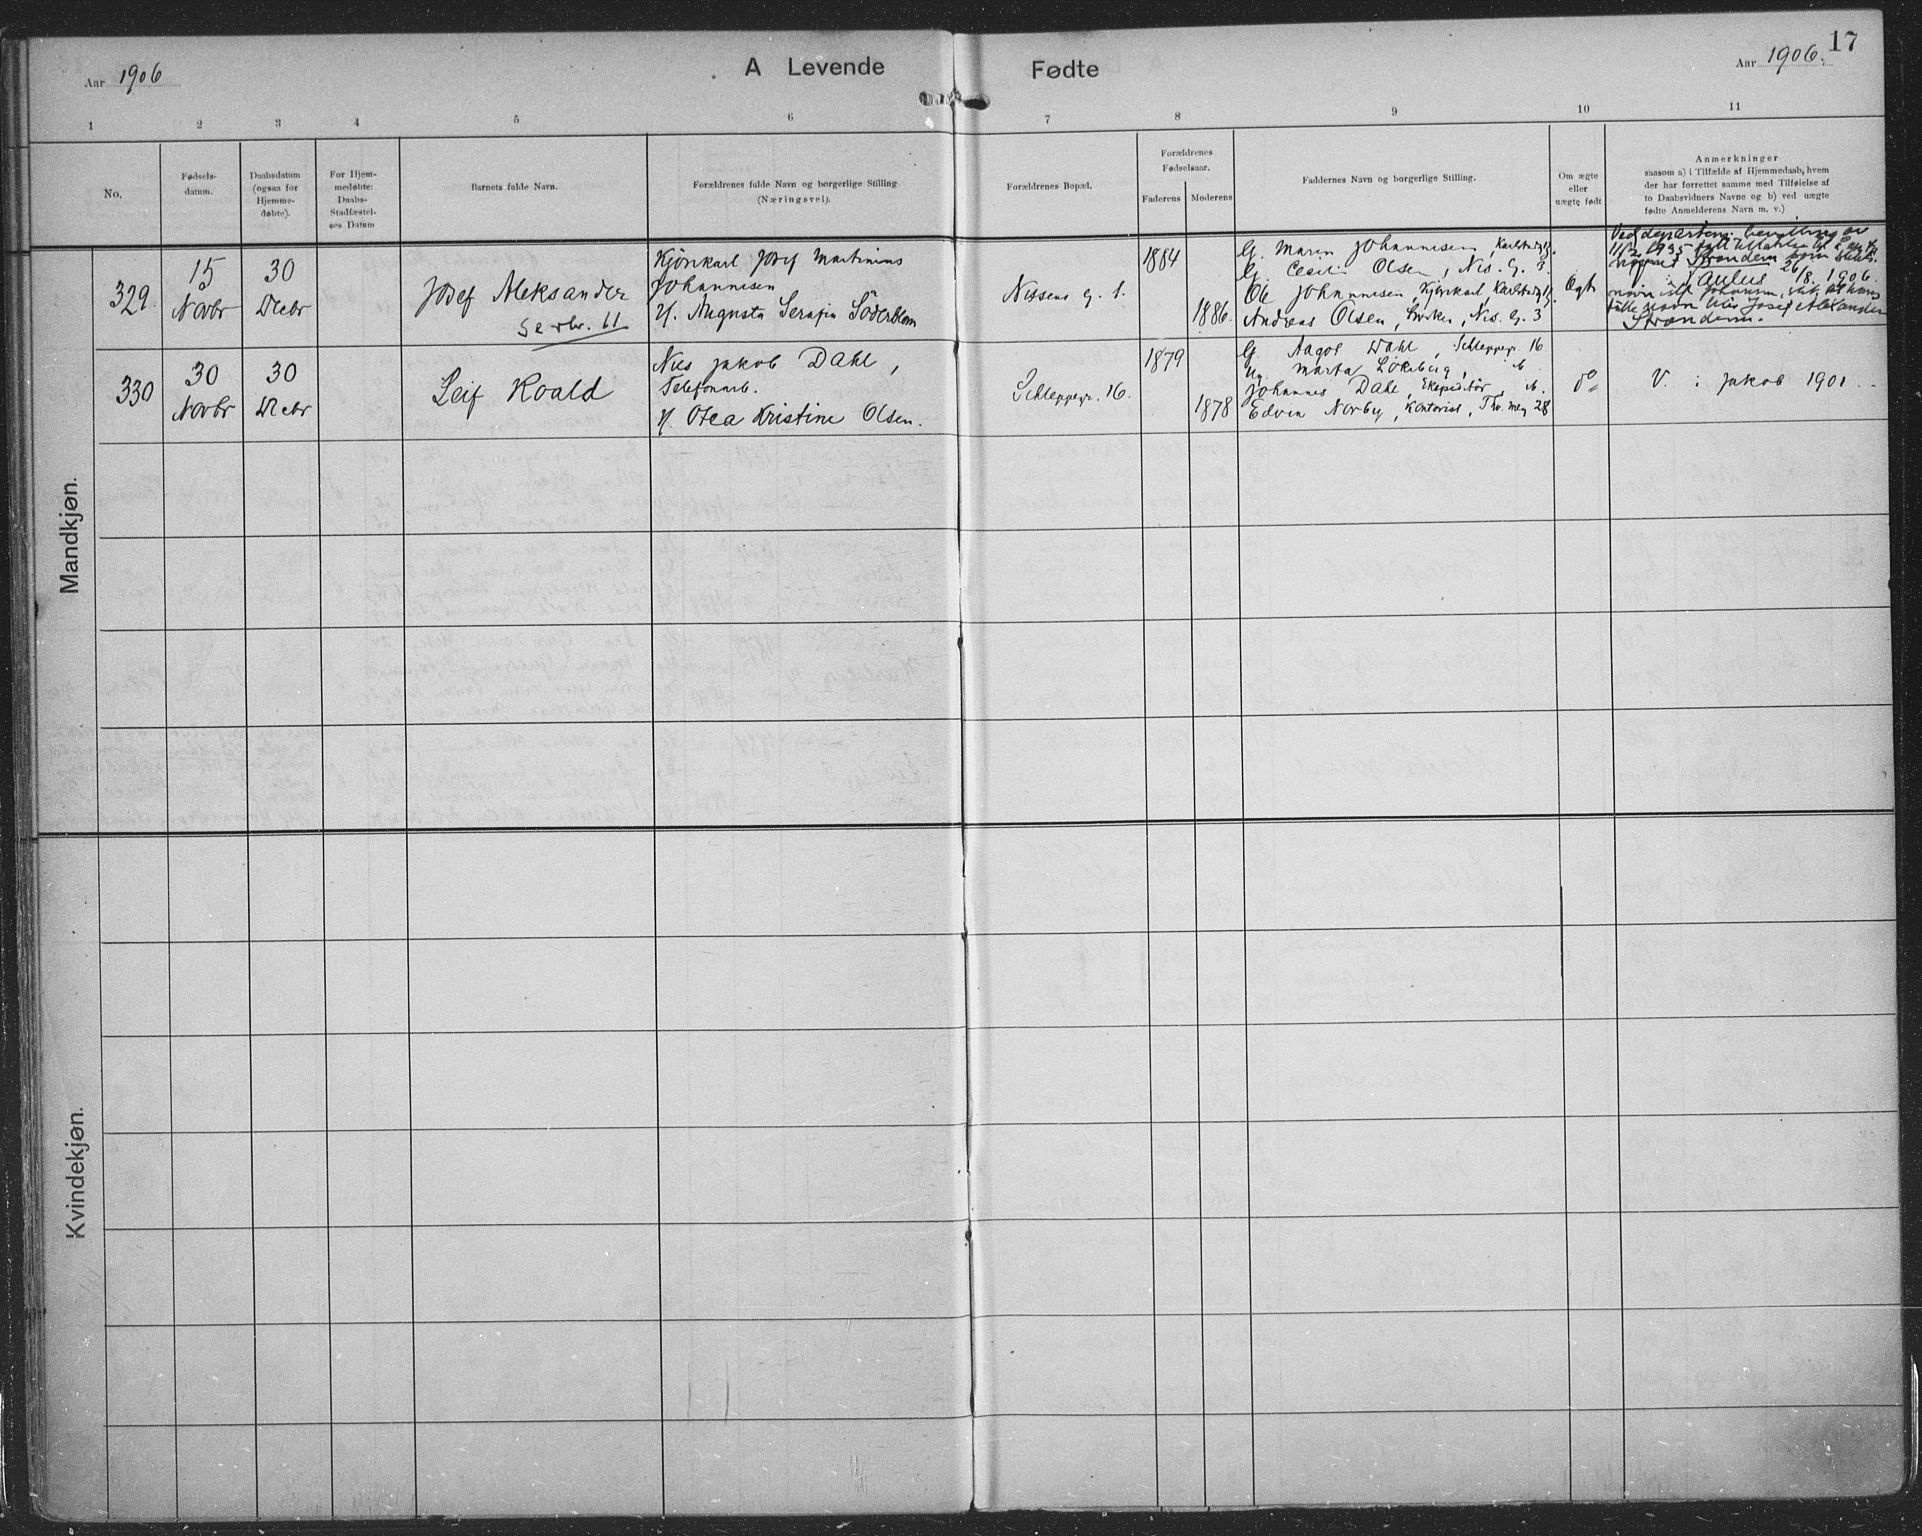 Aar 1906
A Levende
Fødte
Aar 1906.
17
1 2 3 4 5 6 7 8 9 10 11
No.
Fødsels-
datum.
Daabsdatum
(ogsaa for
Hjemme-
døbte).
For Hjem-
medøbte:
Daabs-
Stadfæstel-
ses Datum
Barnets fulde Navn.
Forældrenes fulde Navn og borgerlige Stilling
(Næringsvei).
Forældrenes Bopæl.
Forældrenes
Fødselsaar.
Faderens Moderens
Faddernes Navn og borgerlige Stilling.
Om ægte
eller
uægte født
Anmerkninger
saasom a) i Tilfælde af Hjemmedaab, hvem
der har forrettet samme med Tilføielse af
to Daabsvidners Navne og b) ved uægte
fødte Anmelderens Navn m. v.)
Mandkjøn.
329.
15
Novbr
30
Decbr
Josef Aleksander
Se rbr. 11
Kjørekarl Josef Martinius
Johannesen
H. Augusta Serafia Söderblom
Nissens g. 1.
1884
1886.
G. Maren Johannesen, Karlstadg
G. Olsen, Nis. G. 3
Ole Johannesen, Kjørekarl, Karlstadg
Andreas Olsen, Nis. G. 3
Ægte
Ved departem. bevilling av
11/2 1935 fått tillatelse til å
Strandem som slekts-
navn istf. Johannesen, slik at hans
26/8 1906.
fulle navn blir Josef Alexander
Strandem.
330
30
Novbr
30
Decbr
Leif Roald
Nils Jakob Dahl,
Telefonarb.
H. Otea Kristine Olsen.
Schleppegr. 16.
1879
1878
G. Aagot Dahl, Schleppegr. 16
Ug. Marta Løkeberg,
Johannes Dahl, Ekspeditør,
Edvin Norby, Kontorist, Thv. Mey. 28
do
V. i Jakob 1901.
Kvindekjøn.